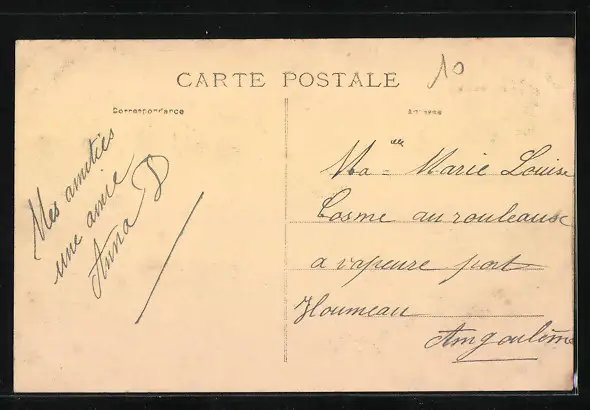 CARTE POSTALE
10
Correspondance
Adresse
Mes amitiés
une amie
Anna D
Ma elle Marie Louise
Cosme au rouleause
a vapeure port
Houmeau
Angoulême